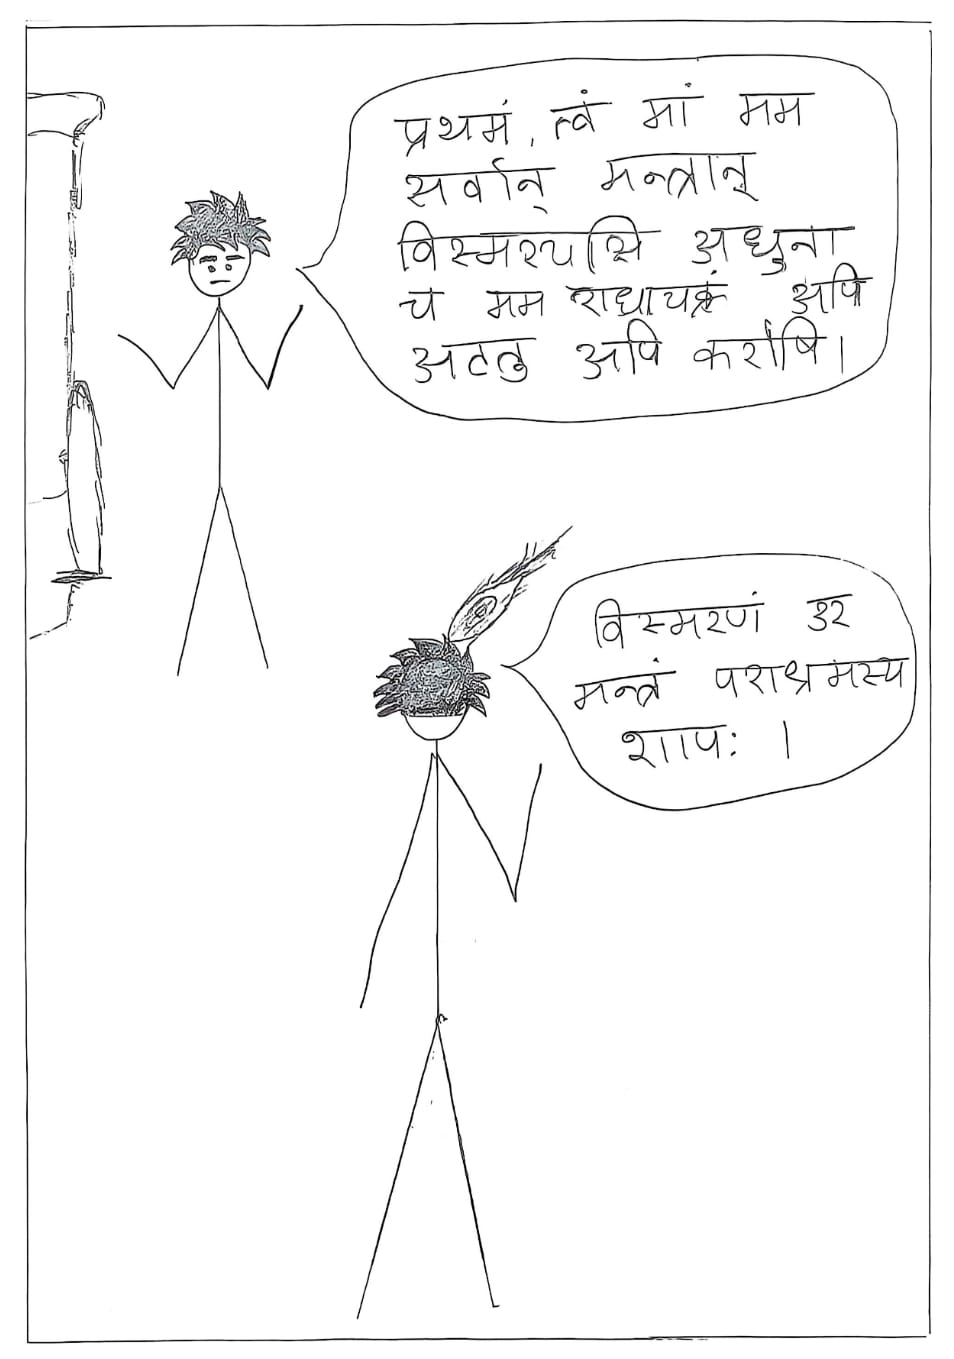 प्रथमं, त्वं मां मम
सर्वान् मन्त्रान्
विस्मरयसि अधुना
च मम राधाचक्रं अपि
अटलु अपि करोषि।
विस्मरणं उर
मन्त्रं पराश्रमस्य
शापः ।